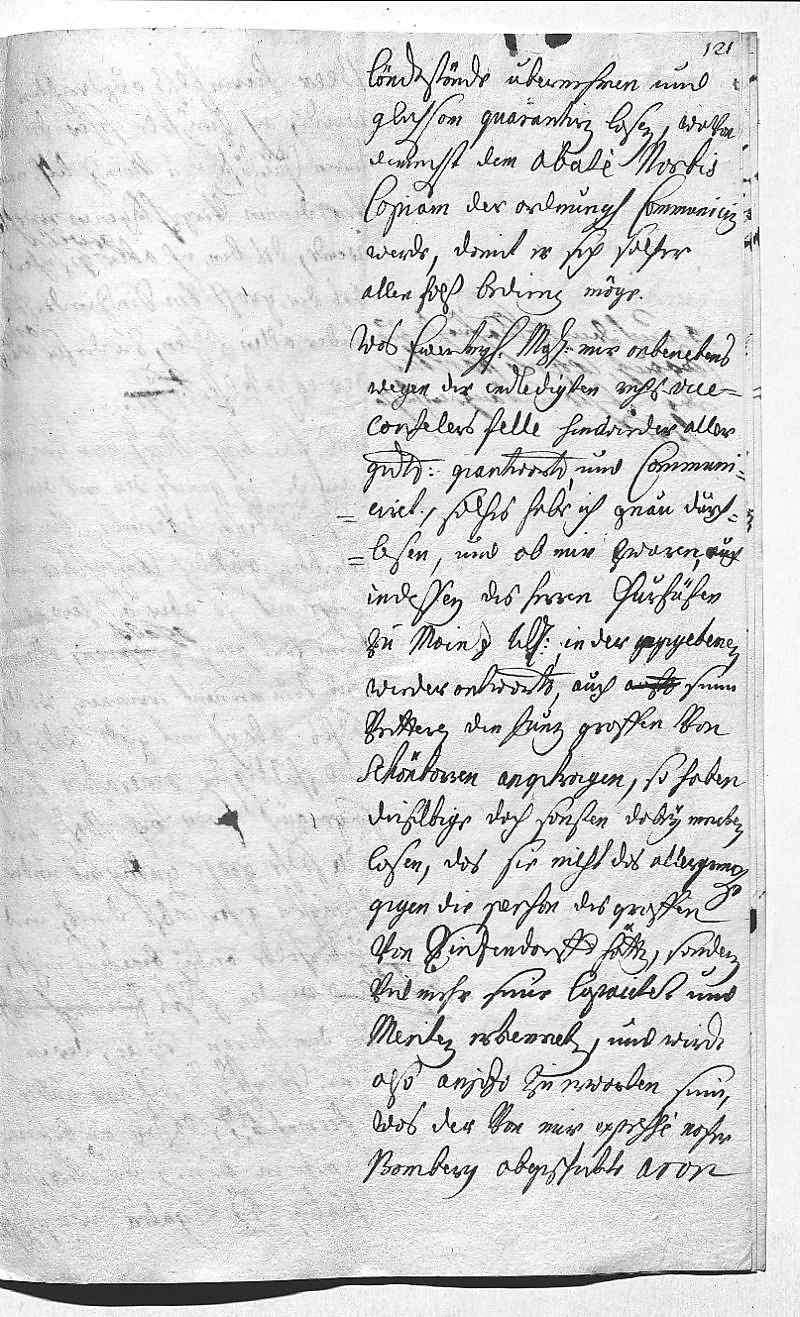 121
Ländtstände übernehmen und
gleichsam guarantirn lasen, wovon
demnechst dem Abate Norbis
Copiam der ordnung Communicirn
werde, damit er sich selcher
allen bedienen möge.
Was Ewer kayß. Mayt: mir anbenebens
wegen der endledigten reichs vice=
Canzelers stelle hinwieder aller
gndst: geantwordt, und Communi=
cirt, solches habe ich genau durch=
lesen, und ob mir zwaren
indessen des herren Churfürsten
zu Mainz in der gegebenen
wieder antwordt, auch seinen
Vettern den graffen Von
Schönborn angetragen, so haben
dieselbige doch sonsten dabey mercken
lasen, das sie nicht das allergeringste
gegen die persohn des graffen
Von Sintzendorff hätte, sondern
Viel mehr seine Capacitet und
Meriten erkennete, und wirdt
also anjetzo zu erwarten sein,
was der Von mir expresse nacher
Bamberg abgeschickte Baron